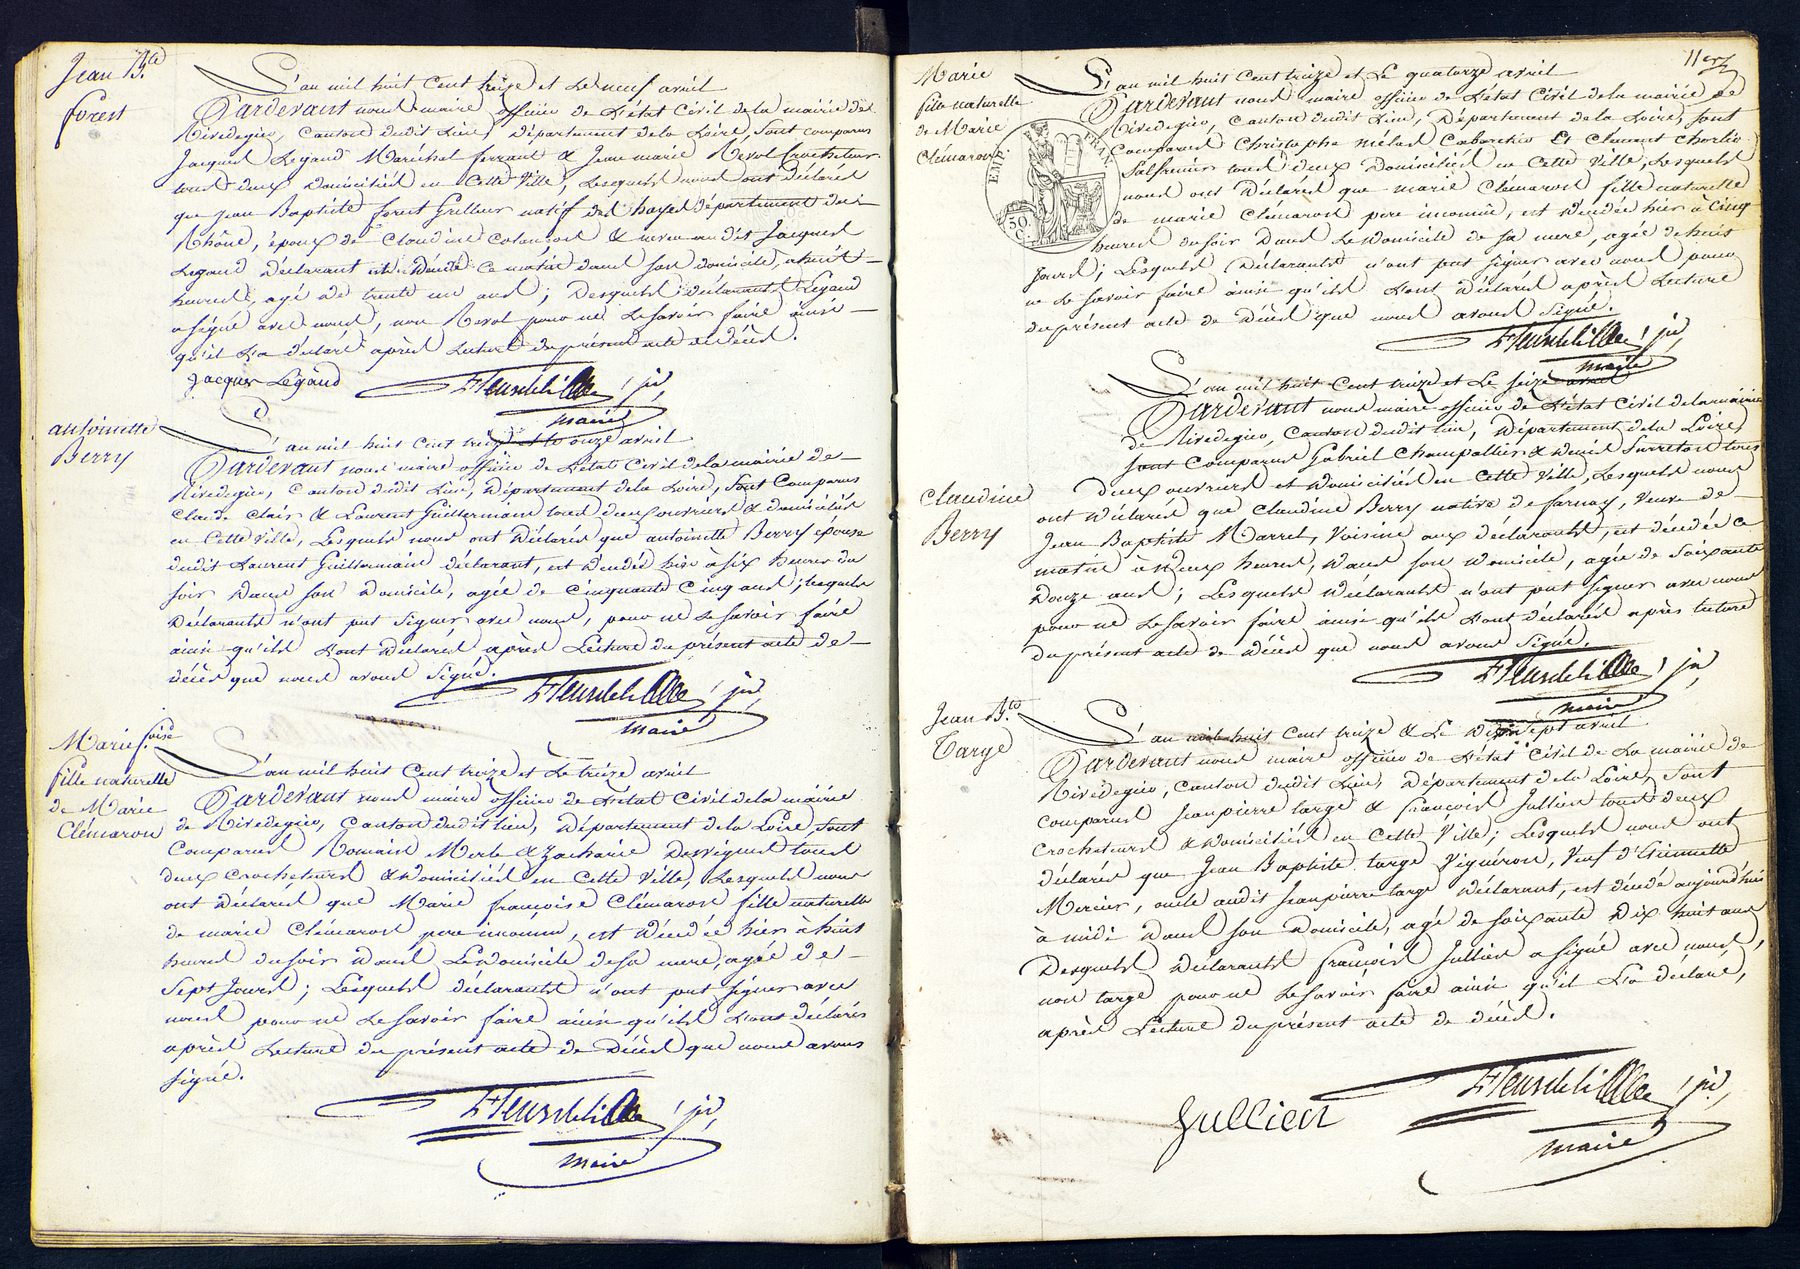 Jean B.te
forest
L'an mil huit cent treize et Le neuf avril
Pardevant nous maire officier de L'état Civil de la mairie de
Rivedegier, Canton dudit Lieu, département de la Loire, Sont comparus
Jacques Legand Maréchal ferrant & Jean marie Revol Crocheteur
tous deux domiciliés en Cette Ville, Lesquels nous ont déclarés
que Jean Baptiste forest Grilleur natif des hayes département du
Rhône, époux de Claudine & neveu audit Jacques
Legand Déclarant est décédé ce matin dans son domicile, a huit
heures, agé de trente un ans; Desquels déclarants Legand
a signé avec nous, non Revol pour ne Le savoir faire ainsi
qu'il L'a déclaré après Lecture du présent acte de décès.
Jacques Legand
Fleurdelille jne,
maire
antoinette
Berry
L'an mil huit cent treize et le onze avril
Pardevant nous maire officier de L'état Civil de la mairie de
Rivedegier, Canton dudit Lieu, Département de la Loire, Sont Comparus
Claude Clair & Laurent Guillermain tous deux ouvriers & domiciliés
en Cette Ville, Lesquels nous ont Déclarés que antoinette Berry épouse
dudit Laurent Guillermain déclarant, est décédée hier à six heures du
soir Dans son Domicile, agée de Cinquante Cinq ans; lesquels
Déclarants n'ont put signer avec nous, pour ne Le savoir faire
ainsi qu'ils L'ont déclarés après Lecture du présent acte de
décès que nous avons signé.
Fleurdelille jne,
maire
Marie f.oise
fille naturelle
de Marie
Clémaron
L'an mil huit cent treize et Le treize avril
Pardevant nous maire officier de L'état Civil de la mairie
de Rivedegier, Canton dudit lieu, Département de la Loire, sont
Comparus Romain Merle & Zacharie Desvignes tous
deux Crocheteurs & domiciliés en Cette Ville, Lesquels nous
ont Déclarés que Marie françoise Clémaron fille naturelle
de marie Clémaron père inconnu, est Décédée hier à huit
heures du soir Dans Le domicile de sa mere, agée de
Sept Jours; Lesquels déclarants n'ont put signer avec
nous pour ne Le savoir faire ainsi qu'ils L'ont déclarés
après Lecture du présent acte de Décès que nous avons
signé.
Fleurdelille jne,
maire
Marie
fille naturelle
de Marie
Clémaron
EMP. FRAN.
50 C.
L'an mil huit Cent treize et Le quatorze avril
Pardevant nous maire officier de L'état Civil de la mairie de
Rivedegier, Canton dudit Lieu, Département de la Loire, sont
Comparus Christophe Cabaretier Et Clement
tous deux Domiciliés en Cette Ville, Lesquels
nous ont Déclarés que marie Clémaron fille naturelle
de marie Clémaron pere inconnu, est décédée hier à Cinq
heures du soir Dans Le domicile de sa mere, agée de huit
Jours; Lesquels Déclarants n'ont put signer avec nous pour
ne Le savoir faire ainsi qu'ils L'ont Déclarés après Lecture
du présent acte de Décès que nous avons signé.
Fleurdelille jne,
maire
Claudine
Berry
L'an mil huit Cent treize et Le seize avril
Pardevant nous maire officier de L'état Civil de la mairie
de Rivedegier, Canton dudit lieu, Département de la Loire,
sont Comparus Gabriel Champallier & Denis tous
Deux ouvriers et domiciliés en Cette Ville, Lesquels nous
ont Déclarés que Claudine Berry native de farnay, Veuve de
Jean Baptiste Marrel, Voisine aux déclarants, est décédée ce
matin à Deux heures, Dans son Domicile, agée de Soixante
Douze ans; Lesquels Déclarants n'ont put signer avec nous
pour ne Le savoir faire ainsi qu'ils L'ont déclarés après lecture
du présent acte de Décès que nous avons signé.
Fleurdelille jne,
maire
Jean B.te
Targe
L'an mil huit Cent treize & Le Dix sept avril
Pardevant nous maire officier de L'état Civil de La mairie de
Rivedegier, Canton dudit Lieu, Département de la Loire, Sont
Comparus Jean pierre targe & François Jullien tous deux
Crocheteurs & domiciliés en Cette Ville; Lesquels nous ont
déclarés que Jean Baptiste targe Vigneron, Veuf d'Etiennette
Mercier, oncle audit Jean pierre targe Déclarant, est décédé aujourd'hui
à midi Dans son Domicile, agé de soixante Dix huit ans
Desquels Déclarants François Jullien a signé avec nous,
non targe pour ne Le savoir faire ainsi qu'il L'a déclaré,
après Lecture du présent acte de décès.
Jullien
Fleurdelille jne,
maire